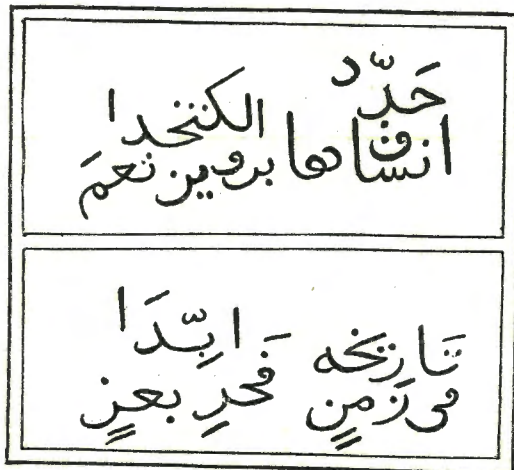 حَدّد الكتخدا
انسا دها بروين نعمَ
تَاريخه اَبِّدَا
فى زَمنٍ فَخرِ بعزٍ